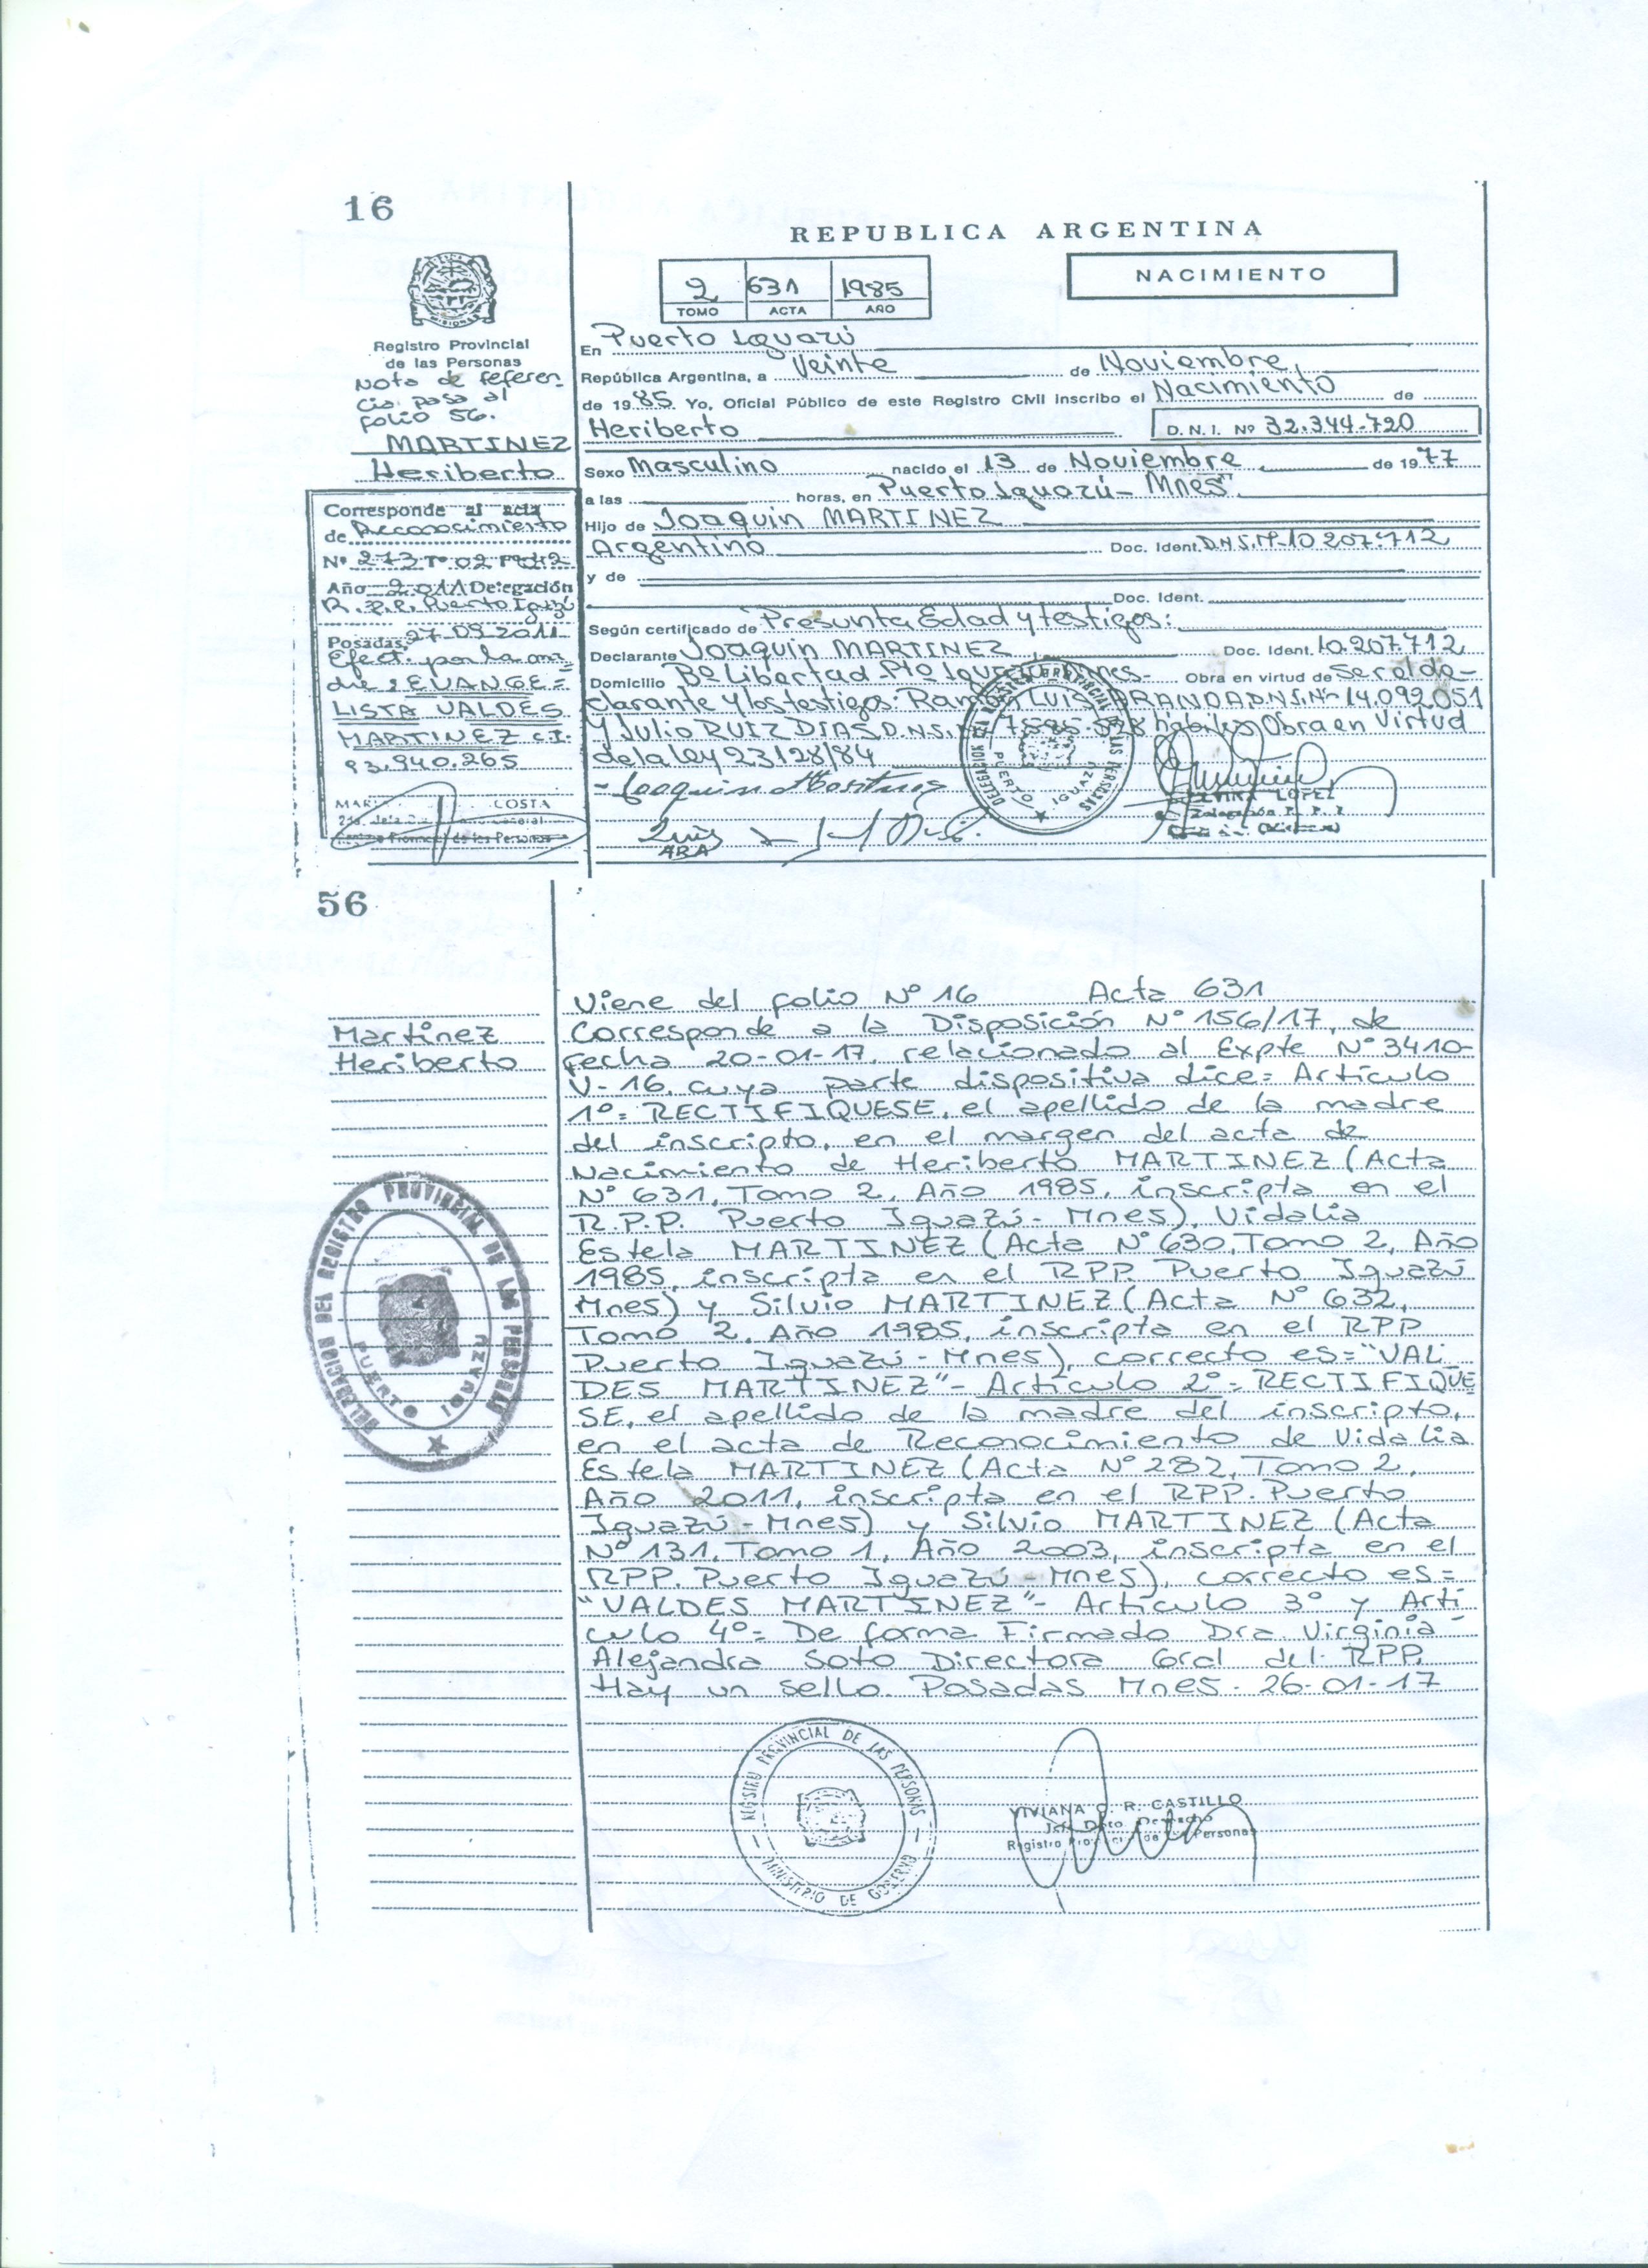 16
REPUBLICA ARGENTINA
NACIMIENTO
2 631 1985
TOMO ACTA AÑO
MISIONES
Registro Provincial
de las Personas
Nota de referen-
cia pasa al
folio 56.
MARTINEZ
Heriberto
Corresponde al acta
de Reconocimiento
Nº 273 Tº 02
Año 2011 Delegación
R.P.P. Puerto Iguazú
Posadas, 27-09-2011
Efect. por la ma-
dre: EVANGE=
LISTA VALDES
MARTINEZ C.I.
93.940.265
COSTA
En Puerto Iguazú
República Argentina, a Veinte de Noviembre
de 1985. Yo, Oficial Público de este Registro Civil inscribo el Nacimiento de
Heriberto D.N.I. Nº 32.344.720
Sexo Masculino nacido el 13 de Noviembre de 1977
a las horas, en Puerto Iguazú - Mnes.
Hijo de Joaquin MARTINEZ
Argentino Doc. Ident. D.N.I. Nº 10 207.712
y de
Doc. Ident.
Según certificado de Presunta Edad y testigos:
Declarante Joaquin MARTINEZ Doc. Ident. 10.207.712
Domicilio Bº Libertad - Pto Iguazú Mnes- Obra en virtud de ser el de-
clarante y los testigos: Ramón LUIS ARANDA D.N.I. Nº 14.092.051
y Julio RUIZ DIAS D.N.I. Nº 7.585.528 hábiles Obra en Virtud
de la ley 23128/84
Joaquin Martinez
Luis
ARA
LOPEZ
Delegación R. P. P.
DELEGACION DEL REGISTRO PROVINCIAL DE LAS PERSONAS
PUERTO IGUAZU
56
Martinez
Heriberto
Viene del folio Nº 16 Acta 631
Corresponde a la Disposición Nº 156/17, de
fecha 20-01-17, relacionado al Expte Nº 3410-
V-16, cuya parte dispositiva dice= Artículo
1º= RECTIFIQUESE, el apellido de la madre
del inscripto, en el margen del acta de
Nacimiento de Heriberto MARTINEZ (Acta
Nº 631, Tomo 2, Año 1985, inscripta en el
R.P.P. Puerto Iguazú - Mnes), Vidalia
Estela MARTINEZ (Acta Nº 630, Tomo 2, Año
1985, inscripta en el RPP. Puerto Iguazú
Mnes) y Silvio MARTINEZ (Acta Nº 632,
Tomo 2, Año 1985, inscripta en el RPP
Puerto Iguazú - Mnes), correcto es="VAL-
DES MARTINEZ"- Artículo 2º= RECTIFIQUE
SE, el apellido de la madre del inscripto,
en el acta de Reconocimiento de Vidalia
Estela MARTINEZ (Acta Nº 282, Tomo 2,
Año 2011, inscripta en el RPP. Puerto
Iguazú - Mnes) y Silvio MARTINEZ (Acta
Nº 131, Tomo 1, Año 2003, inscripta en el
RPP. Puerto Iguazú - Mnes), correcto es=
"VALDES MARTINEZ"- Artículo 3º y Artí-
culo 4º= De forma Firmado Dra. Virginia
Alejandra Soto Directora Gral del RPP.
Hay un sello. Posadas Mnes. 26-01-17
DELEGACION DEL REGISTRO PROVINCIAL DE LAS PERSONAS
PUERTO IGUAZU
REGISTRO PROVINCIAL DE LAS PERSONAS
MINISTERIO DE GOBIERNO
VIVIANA C. R. CASTILLO
Registro Provincial de las Personas